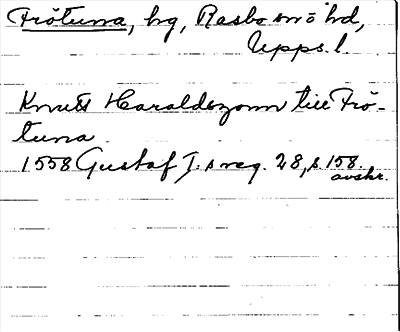 Frötuna, hg, Rasbo snö hd,
Upps. l.
Knut Haraldszonn till Frö-
tuna.
1558 Gustaf I:s reg. 28, s 158.
avskr.